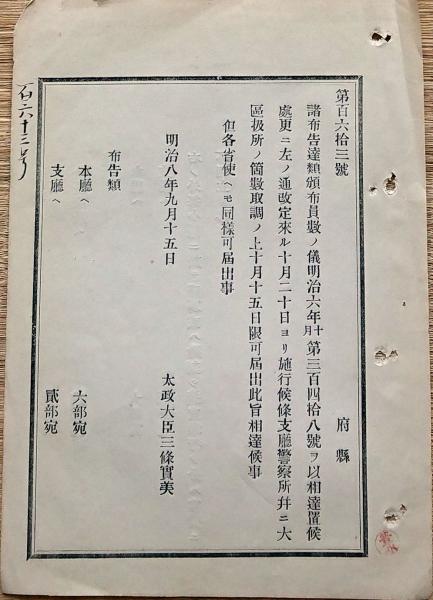 第百六拾三號
府縣
諸布告達類頒布員數ノ儀明治六年十月第三百四拾八號ヲ以相達置候
處更ニ左ノ通改定來ル十月二十日ヨリ施行候條支廳警察所幷ニ大
區扱所ノ箇數取調ノ上十月十五日限可屆出此旨相達候事
但各省使ヘモ同樣可屆出事
明治八年九月十五日
太政大臣三條實美
布告類
本廳ヘ 六部宛
支廳ヘ 貳部宛
百六十三